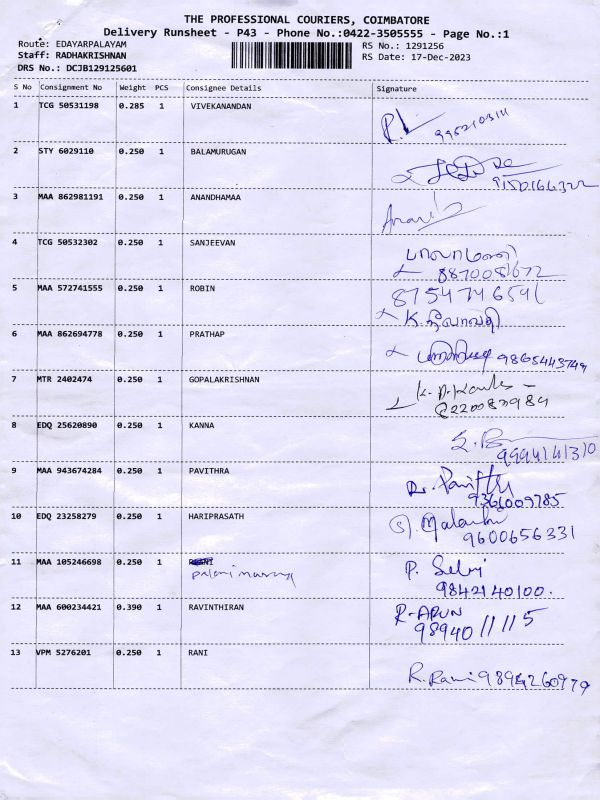 THE PROFESSIONAL COURIERS, COIMBATORE
Delivery Runsheet - P43 - Phone No.:0422-3505555 - Page No.:1
Route: EDAYARPALAYAM RS No.: 1291256
Staff: RADHAKRISHNAN RS Date: 17-Dec-2023
DRS No.: DCJB129125601
S No Consignment No Weight PCS Consignee Details Signature
1 TCG 50531198 0.285 1 VIVEKANANDAN
2 STY 6029110 0.250 1 BALAMURUGAN
9150166322
3 MAA 862981191 0.250 1 ANANDHAMAA
4 TCG 50532302 0.250 1 SANJEEVAN பாலாமணி
8870081672
5 MAA 572741555 0.250 1 ROBIN 8754746591
6 MAA 862694778 0.250 1 PRATHAP
9865443749
7 MTR 2402474 0.250 1 GOPALAKRISHNAN
8 EDQ 25620890 0.250 1 KANNA
9994141310
9 MAA 943674284 0.250 1 PAVITHRA
9366009785
10 EDQ 23258279 0.250 1 HARIPRASATH
9600656331
11 MAA 105246698 0.250 1 P. Selvi
9842140100.
12 MAA 600234421 0.390 1 RAVINTHIRAN R-ARUN
98940 11115
13 VPM 5276201 0.250 1 RANI
R. Rani 9894260979